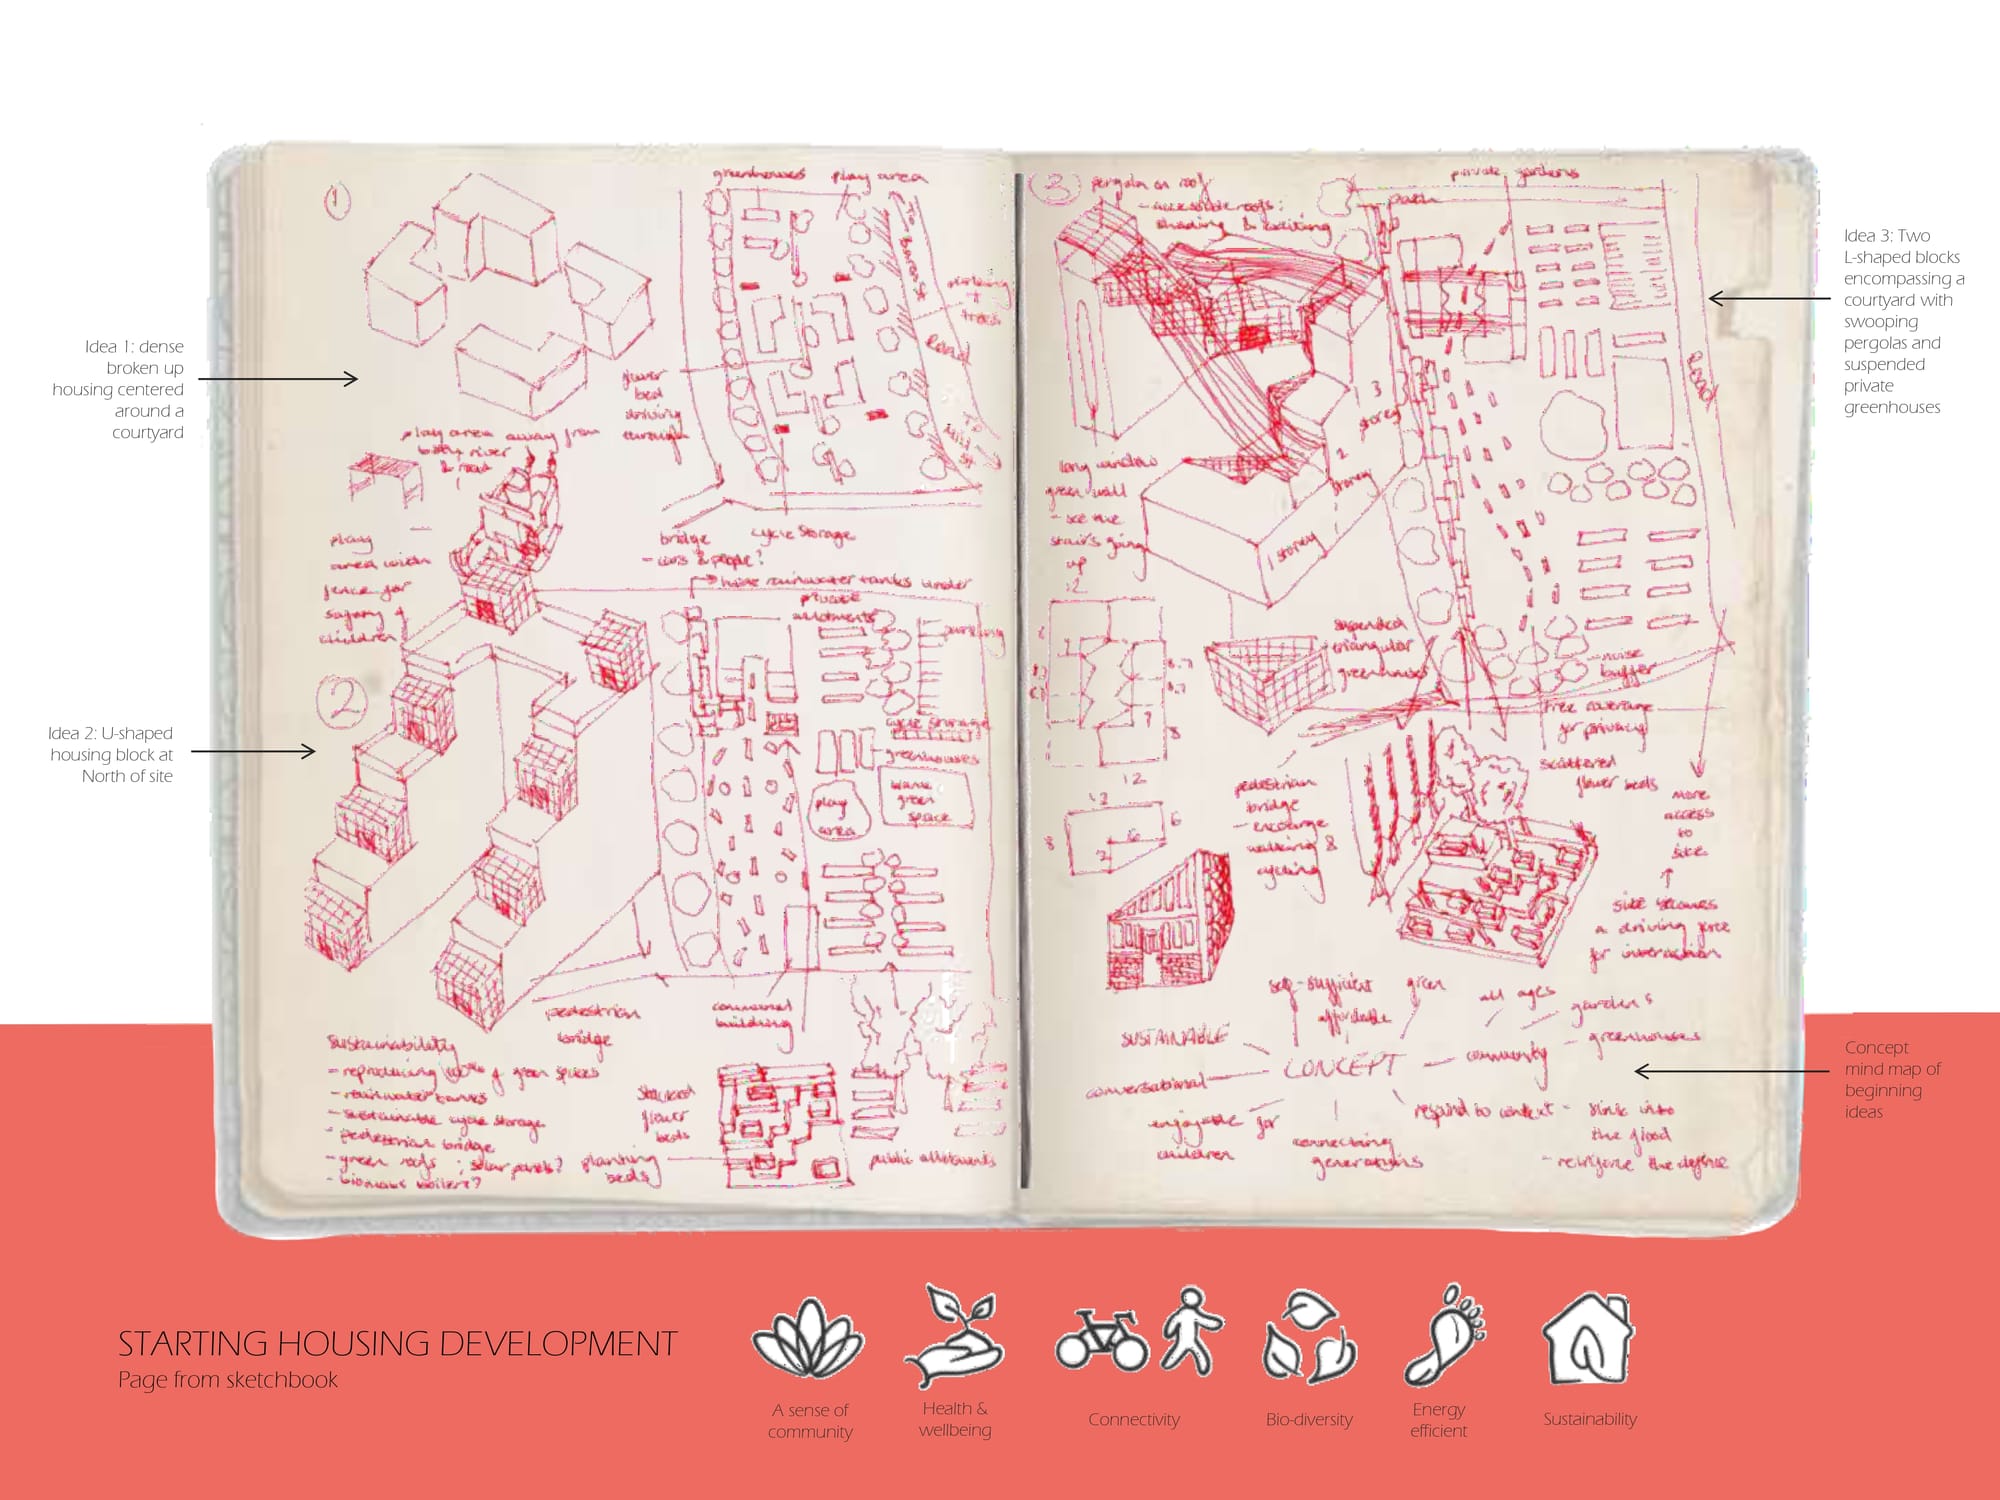 1
greenhouses
play area
To Barrest
parking
+
trees
Road
flower
bed
driving
through
play area away from
both river
& road
play
area with
fence for
safety of
children
bridge
- cars & people?
cycle storage
house rainwater tanks under
private
allotments
parking
2
cycle storage
greenhouses
play
area
blank
green
space
pedestrian
bridge
communal
building
Sustainability
- reproducing 100% of green spaces
- rainwater tanks
- sustainable cycle storage
- pedestrian bridge
- green roofs ; solar panels?
- biomass boilers?
stacked
flower
beds
planting
beds
public allotments
3
pergola on roof
- accessible roofs :
shading & exciting
path
private gardens
Road
3
storey
2
storey
1 storey
long window
green wall
- see the
stairs going
up
12
8.7
8.7
7
8
12
suspended
triangular
greenhouses
noise
buffer
tree coverage
for privacy
scattered
flower beds
pedestrian
bridge
- encourage
walking &
cycling
12
6
8
6
2
more
access
to
site
site becomes
a driving force
for interaction
self-sufficient
green
affordable
all ages
gardens
greenhouses
SUSTAINABLE
CONCEPT
community
conversational
enjoyable for
children
connecting
generations
respond to context - sink into
the flood
- reinforce the defence
Idea 1: dense
broken up
housing centered
around a
courtyard
Idea 2: U-shaped
housing block at
North of site
Idea 3: Two
L-shaped blocks
encompassing a
courtyard with
swooping
pergolas and
suspended
private
greenhouses
Concept
mind map of
beginning
ideas
STARTING HOUSING DEVELOPMENT
Page from sketchbook
A sense of
community
Health &
wellbeing
Connectivity
Bio-diversity
Energy
efficient
Sustainability